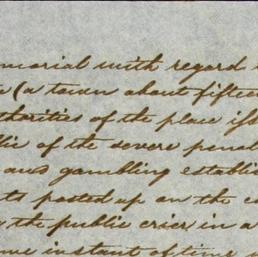 emorial with regard
(a town about fifteen
thorities of the place
lic of the severe penal
gambling establis
ts posted up on the
the public crier in a
me instant of time